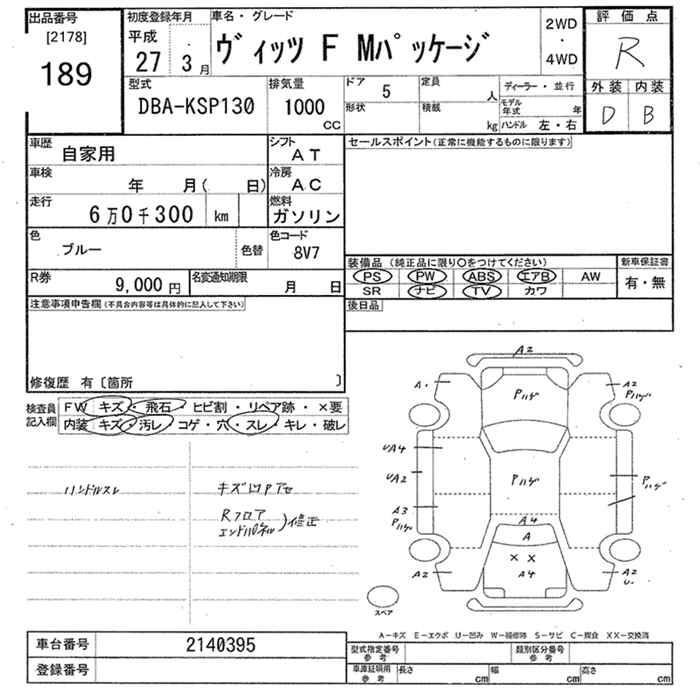 出品番号 初度登録年月 車名・グレード 2WD 評価点
[2178] 平成 ヴィッツ F Mパッケージ ・ R
189 27 3月 4WD
型式 排気量 ドア 5 定員 人 ディーラー・並行 外装 内装
DBA-KSP130 1000 cc 形状 積載 kg モデル年式 年 D B
ハンドル 左・右
車歴 自家用 シフト AT セールスポイント(正常に機能するものに限ります)
車検 年 月( 日) 冷房 AC
走行 6万0千300 km 燃料 ガソリン
色 ブルー 色替 色コード 8V7
装備品 (純正品に限り○をつけてください) 新車保証書
PS PW ABS エアB AW 有・無
SR ナビ TV カワ
R券 9,000円 名変通知期限 月 日
後日品
注意事項申告欄(不具合内容等は具体的に記入して下さい)
修復歴 有〔箇所 〕
検査員記入欄 FW キズ・飛石・ヒビ割・リペア跡・×要
内装 キズ・汚レ・コゲ・穴・スレ・キレ・破レ
ハンドルスレ キズ凹アセ
Rフロア
エンドパネル)修正
A2
A・ Pハゲ A2
Pハゲ
UA4
UA2 Pハゲ Pハゲ
A3
Pハゲ A4
A
× ×
A2 A4 A2
U-
スペア
A-キズ E-エクボ U-凹み W-補修跡 S-サビ C-腐食 XX-交換済
車台番号 2140395 型式指定番号 参考 類別区分番号 参考
登録番号 車庫証明用 参考 長さ cm 幅 cm 高さ cm